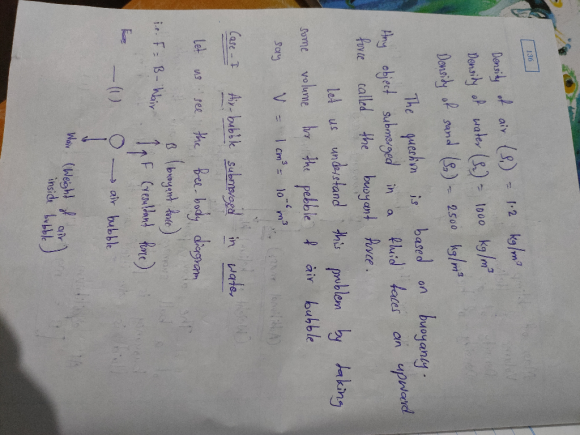 Density of air (ρ₁) = 1.2 kg/m³
Density of water (ρ₂) = 1000 kg/m³
Density of sand (ρ₃) = 2500 kg/m³
The question is based on buoyancy.
Any object submerged in a fluid faces an upward
force called the buoyant force.
Let us understand this problem by taking
some volume for the pebble & air bubble
say V = 1 cm³ = 10⁻⁶ m³
Case-I Air-bubble submerged in water
Let us see the free body diagram
B (buoyant force)
F (resultant force)
i.e. F = B - Wair
— (1)
→ air bubble
Wair (Weight of air
inside bubble)